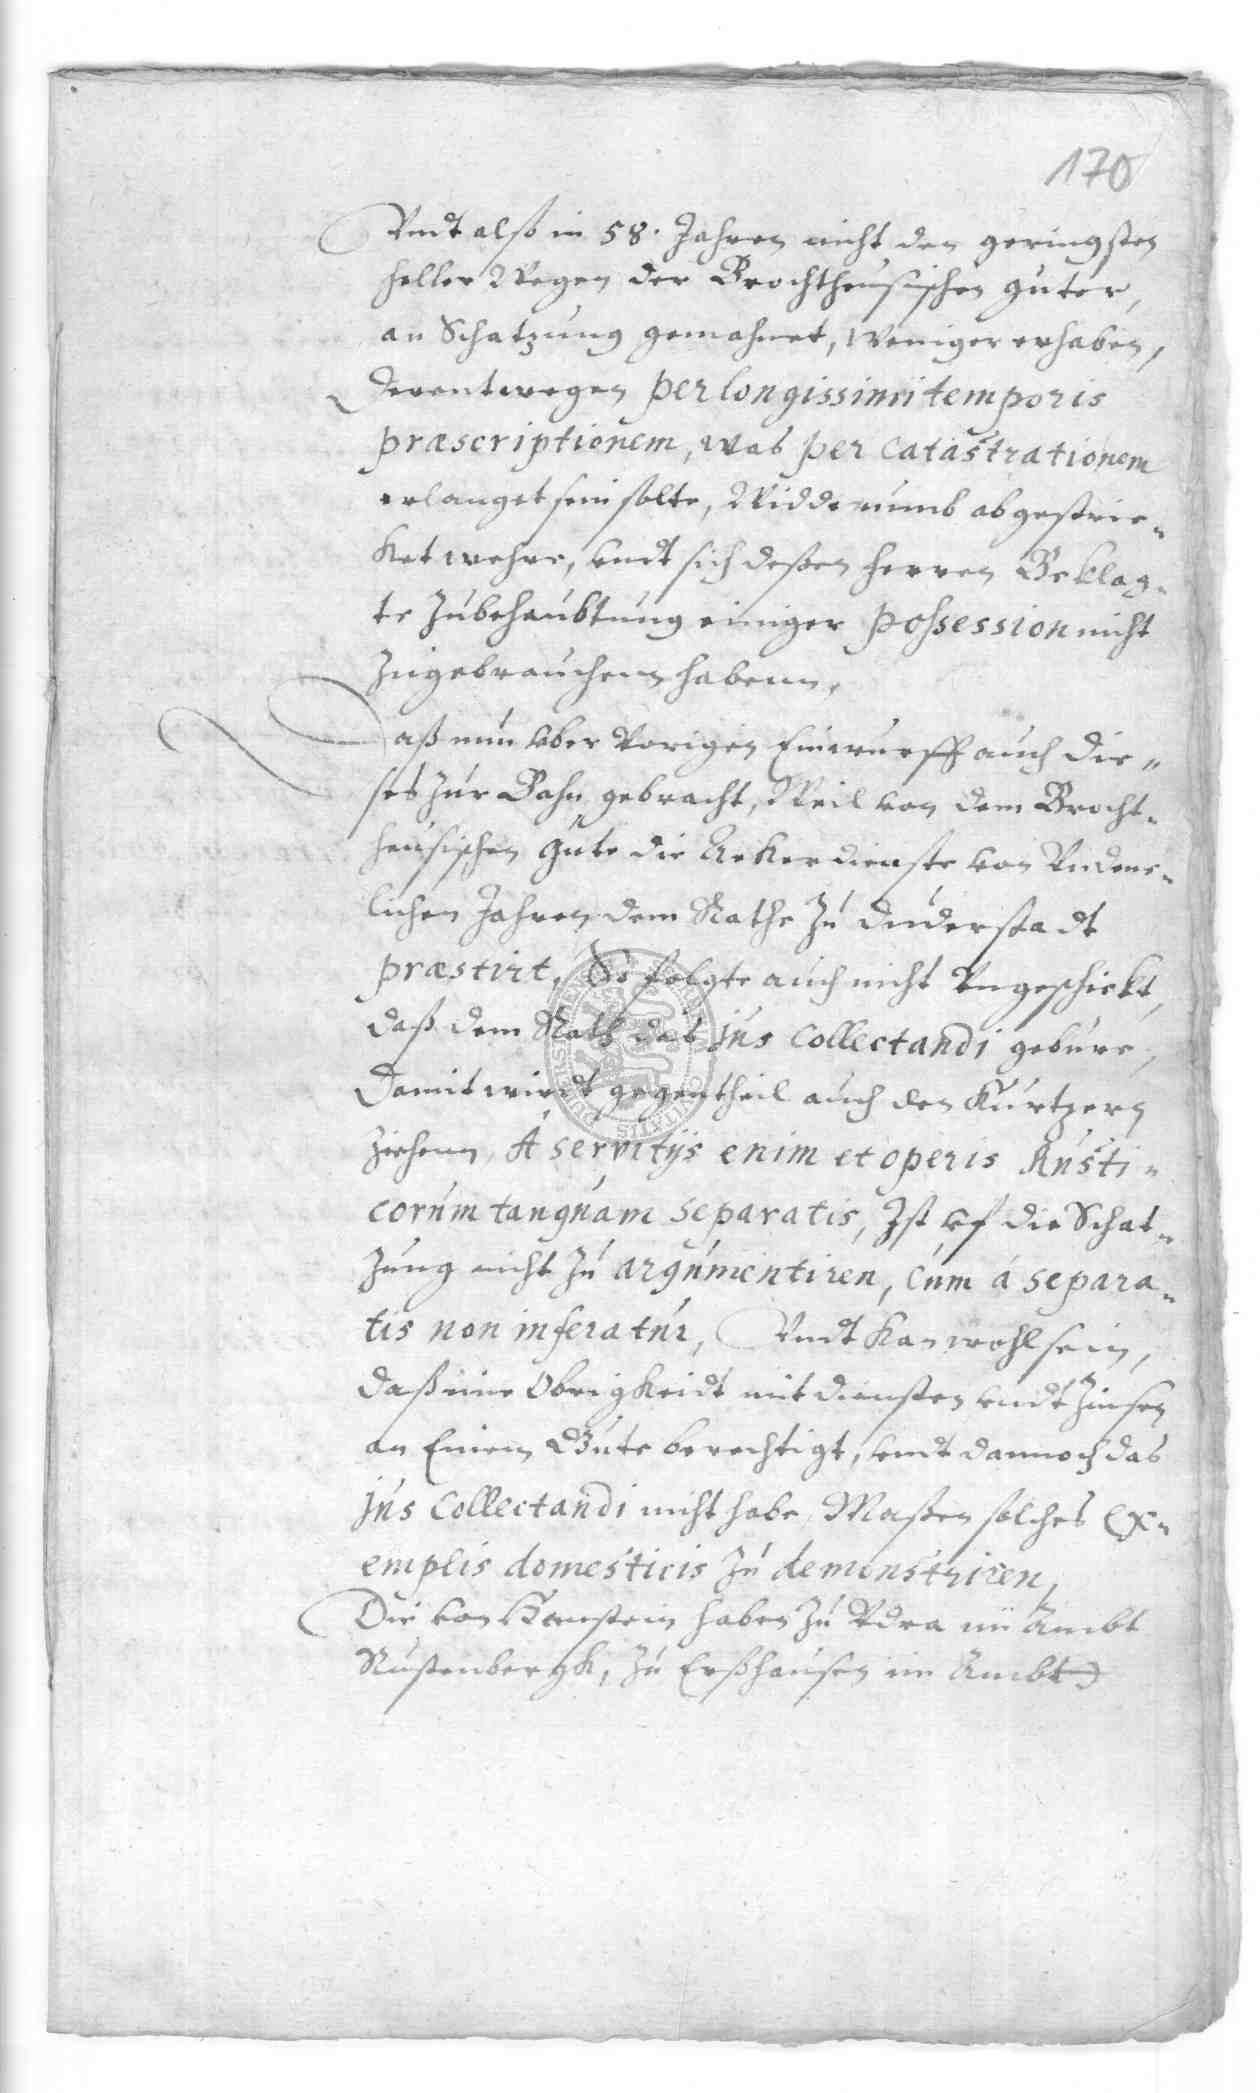 170
Vndt alß in 58. Jahren nicht den geringsten
heller Wegen der Brochtheusischen guter,
an Schatzung gemahnet, Weniger erhaben,
derentwegen per longissimi temporis
præscriptionem, was per catastrationem
erlanget sein solte, Widderumb abgestrie-
ket wehre, vndt sich deßen herren Beklag-
te Zubehaubtung einiger possession nicht
Zugebrauchenn habenn,
Daß nun vber Vorigen Einwurff auch die-
ses Zur Bahn gebracht, Weil von dem Brocht-
heusischen gute die Ackerdienste von Vndenc-
lichen Jahren dem Rathe Zu Duderstadt
præstirt, So folgte auch nicht Vngeschickt,
daß dem Rath das jus Collectandi gebure,
Damit wirdt gegentheil auch den Kurtzern
Ziehenn, A servitijs enim et operis Rusti-
corum tanquam separatis, Ist vf die Schat-
Zung nicht Zu argumentiren, cum á separa-
tis non inferatur, Vndt kan wohl sein,
daß eine Obrigkeidt mit diensten vndt Zinsen
an Einem Gute berechtigt, vndt dannoch das
jus Collectandi nicht habe, Maßen solches Ex-
emplis domesticis Zu demonstriren,
Die von Hanstein haben Zu Vdra im Ambt
Rustenbergk, Zu Erßhausen im Ambt